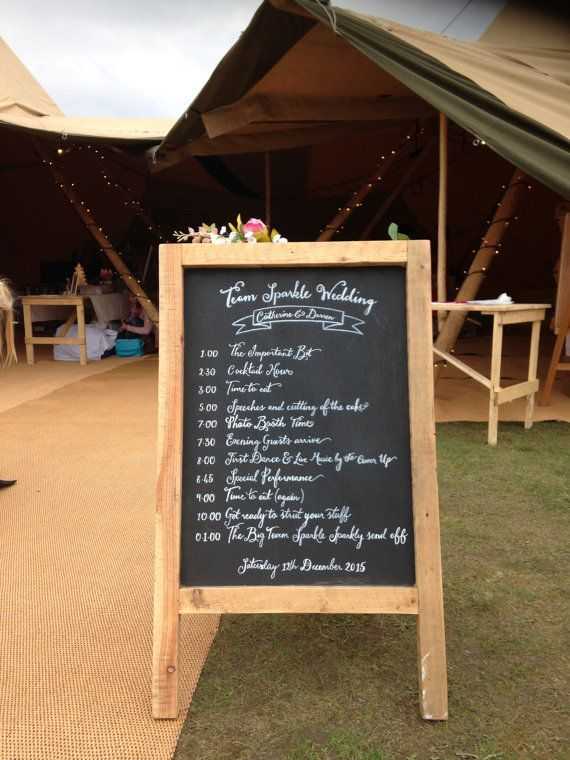 Team Sparkle Wedding
Catherine & Darren
1:00 The Important Bit
2:30 Cocktail Hour
3:00 Time to eat
5:00 Speeches and cutting of the cake
7:00 Photo Booth Time
7:30 Evening Guests arrive
8:00 First Dance & Live Music by the Cover Up
8:45 Special Performance
9:00 Time to eat (again)
10:00 Get ready to strut your stuff
01:00 The Big Team Sparkle Sparkly send off
Saturday 12th December 2015